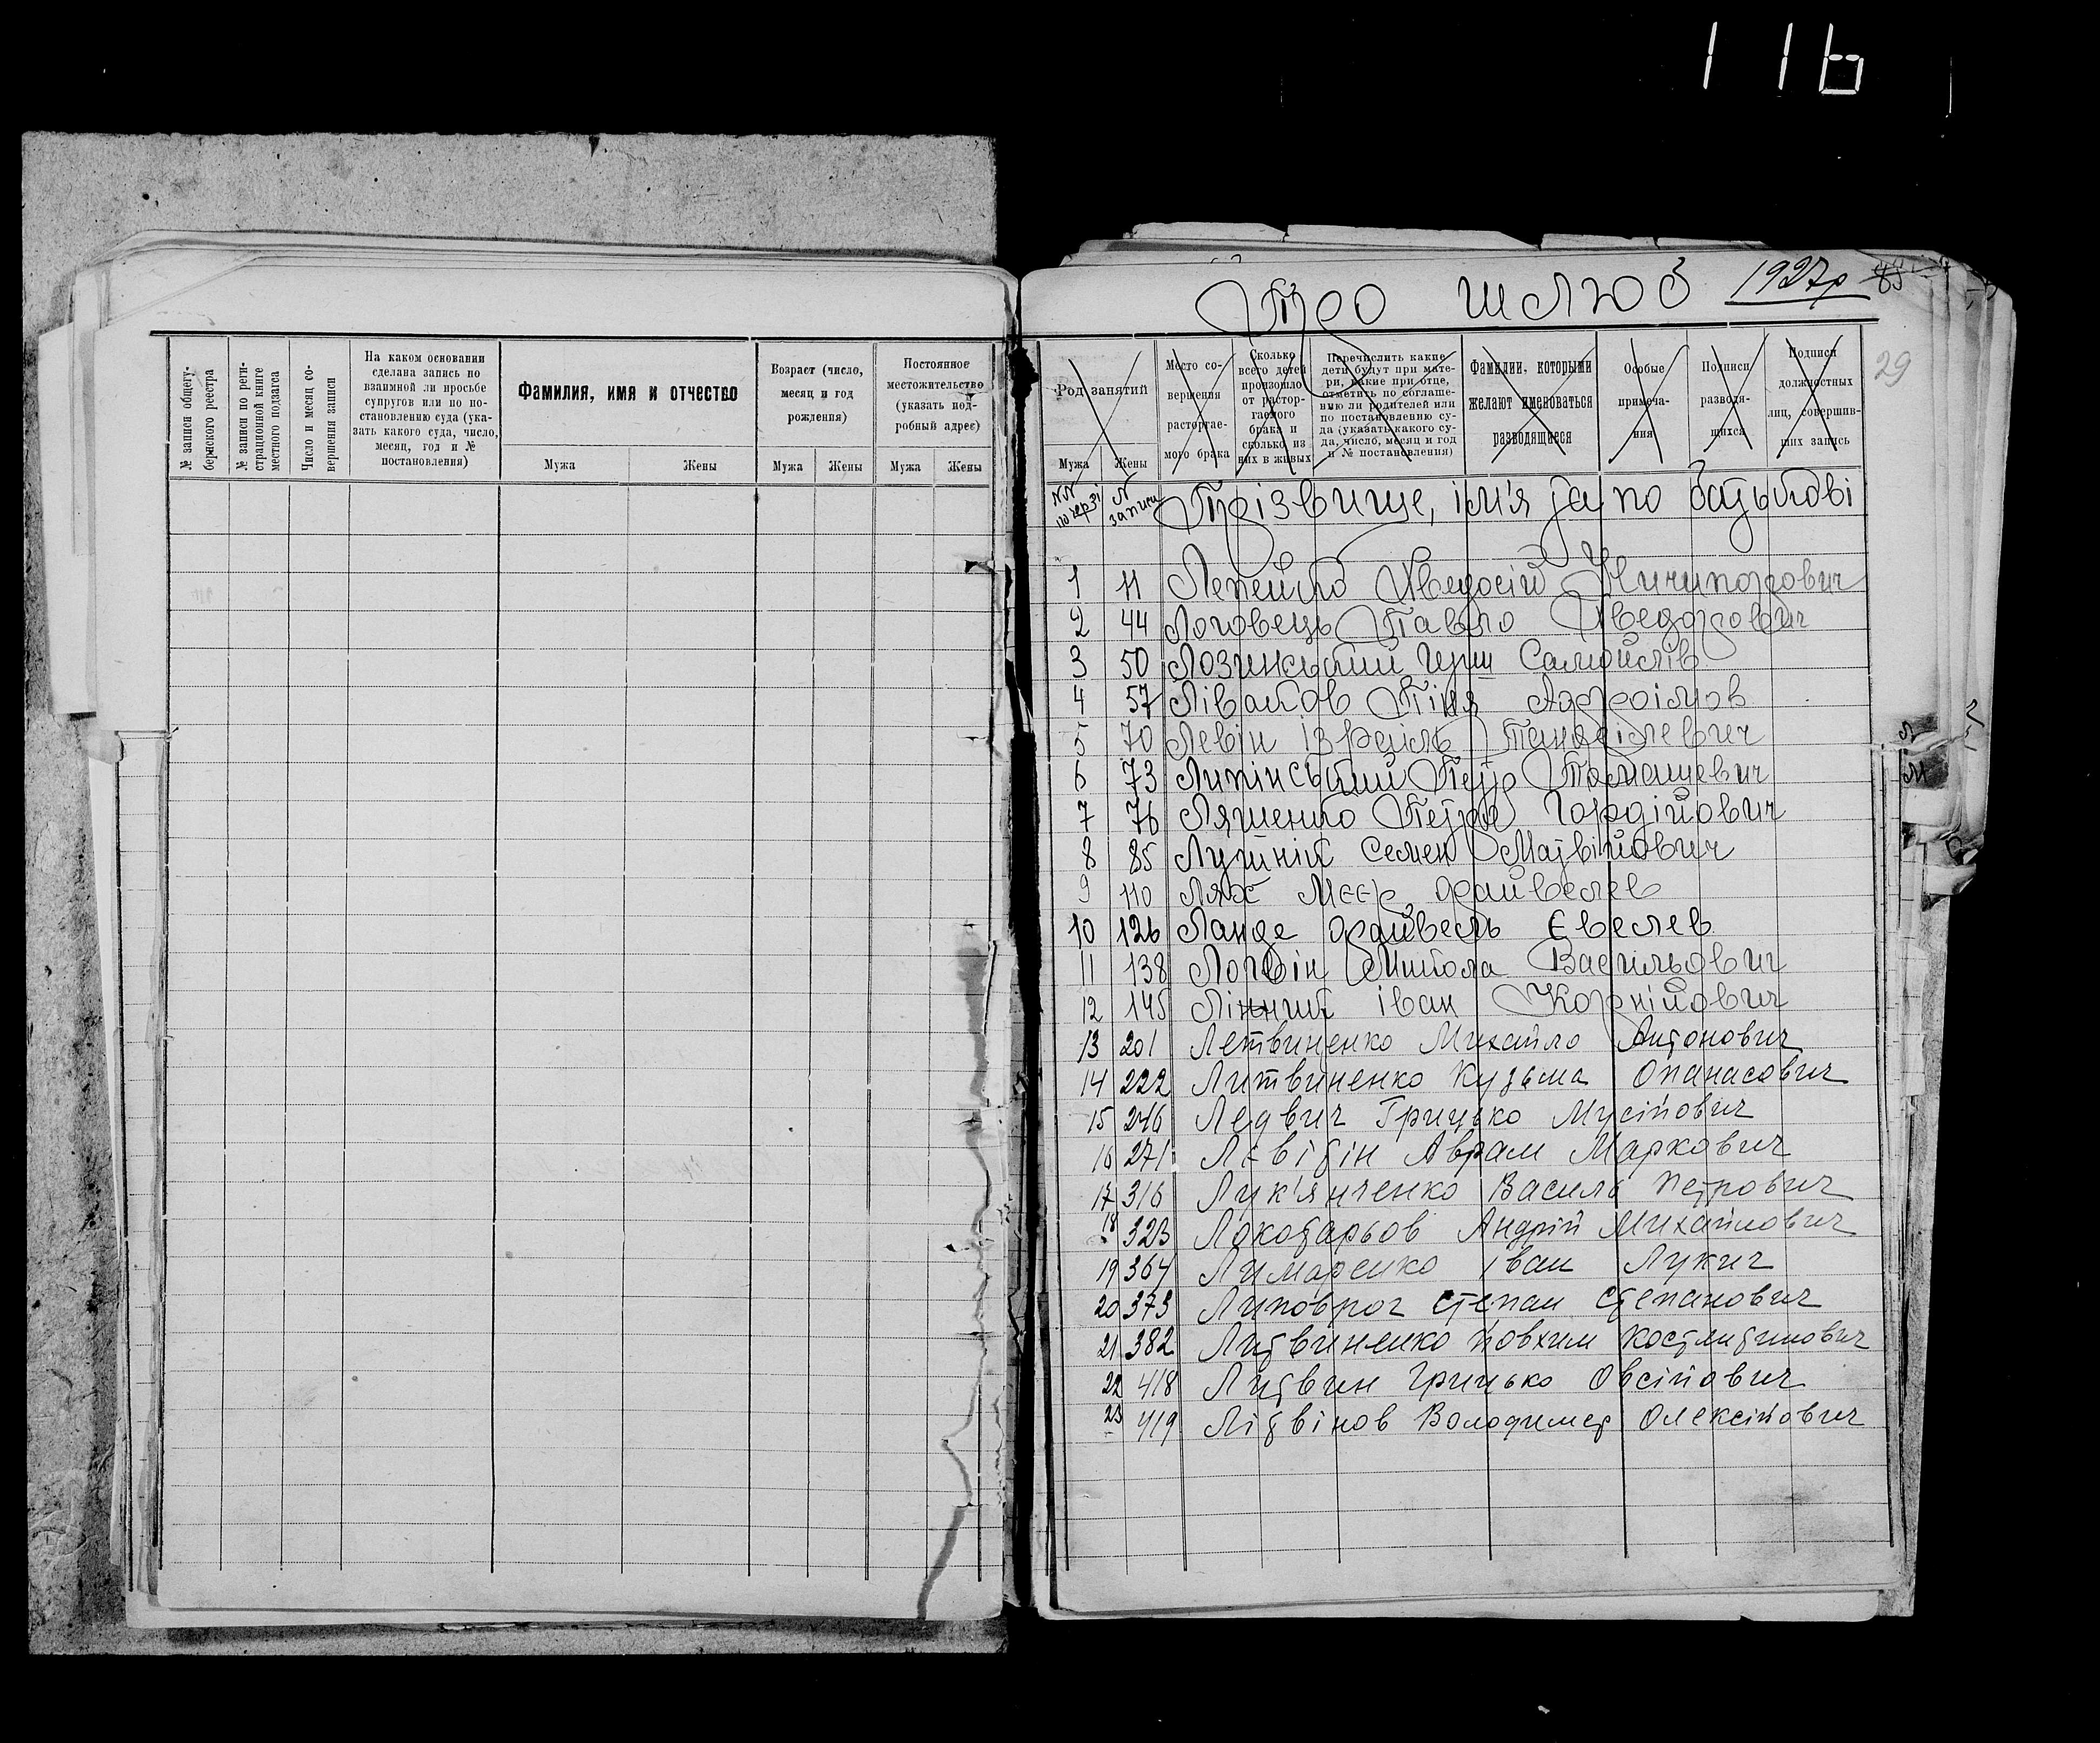 116
Про шлюб 1927р
29
№ записи общегу-
бернского реестра
№ записи по реги-
страционной книге
местного подзагса
Число и месяц со-
вершения записи
На каком основании
сделана запись по
взаимной ли просьбе
супругов или по по-
становлению суда (ука-
зать какого суда, число,
месяц, год и №
постановления)
Фамилия, имя и отчество
Мужа Жены
Возраст (число,
месяц и год
рождения)
Мужа Жены
Постоянное
местожительство
(указать под-
робный адрес)
Мужа Жены
Род занятий
Мужа Жены
Место со-
вершения
расторгае-
мого брака
Сколько
всего детей
произошло
от растор-
гаемого
брака и
сколько из
них в живых
Перечислить какие
дети будут при мате-
ри, какие при отце,
отметить по соглаше-
нию ли родителей или
по постановлению су-
да (указать какого су-
да, число, месяц и год
и № постановления)
Фамилии, которыми
желают именоваться
разводящиеся
Особые
примеча-
ния
Подписи
разводя-
щихся
Подписи
должностных
лиц, совершив-
ших запись
NN по черзі N записи Прізвище, ім'я та по батькові
1 11 Лепейко Хведосій Ничипорович
2 44 Логовець Павло Хведорович
3 50 Лозинський Герш Самойлів
4 57 Ліваков Піня
5 70 Левін Ізраїль
6 73 Липінський Петро Томашевич
7 76 Ляшенко Петро Гордійович
8 85 Лушнік Семен Матвійович
9 110 Лях Меєр Файвелев
10 126 Ланде Файвель Євелев
11 138 Логвін Микола Васильович
12 145 Лінник Іван Корнійович
13 201 Летвиненко Михайло Антонович
14 222 Литвиненко Кузьма Опанасович
15 246 Ледвич Грицько Мусійович
16 271 Лєвітін Аврам Маркович
17 316 Лук'янченко Василь Петрович
18 323 Локотарьов Андрій Михайлович
19 364 Лимаренко Іван Лукич
20 373 Липоврог Степан Степанович
21 382 Литвиненко Йовхим Костянтинович
22 418 Литвин Грицько Овсійович
23 419 Літвінов Володимер Олексійович